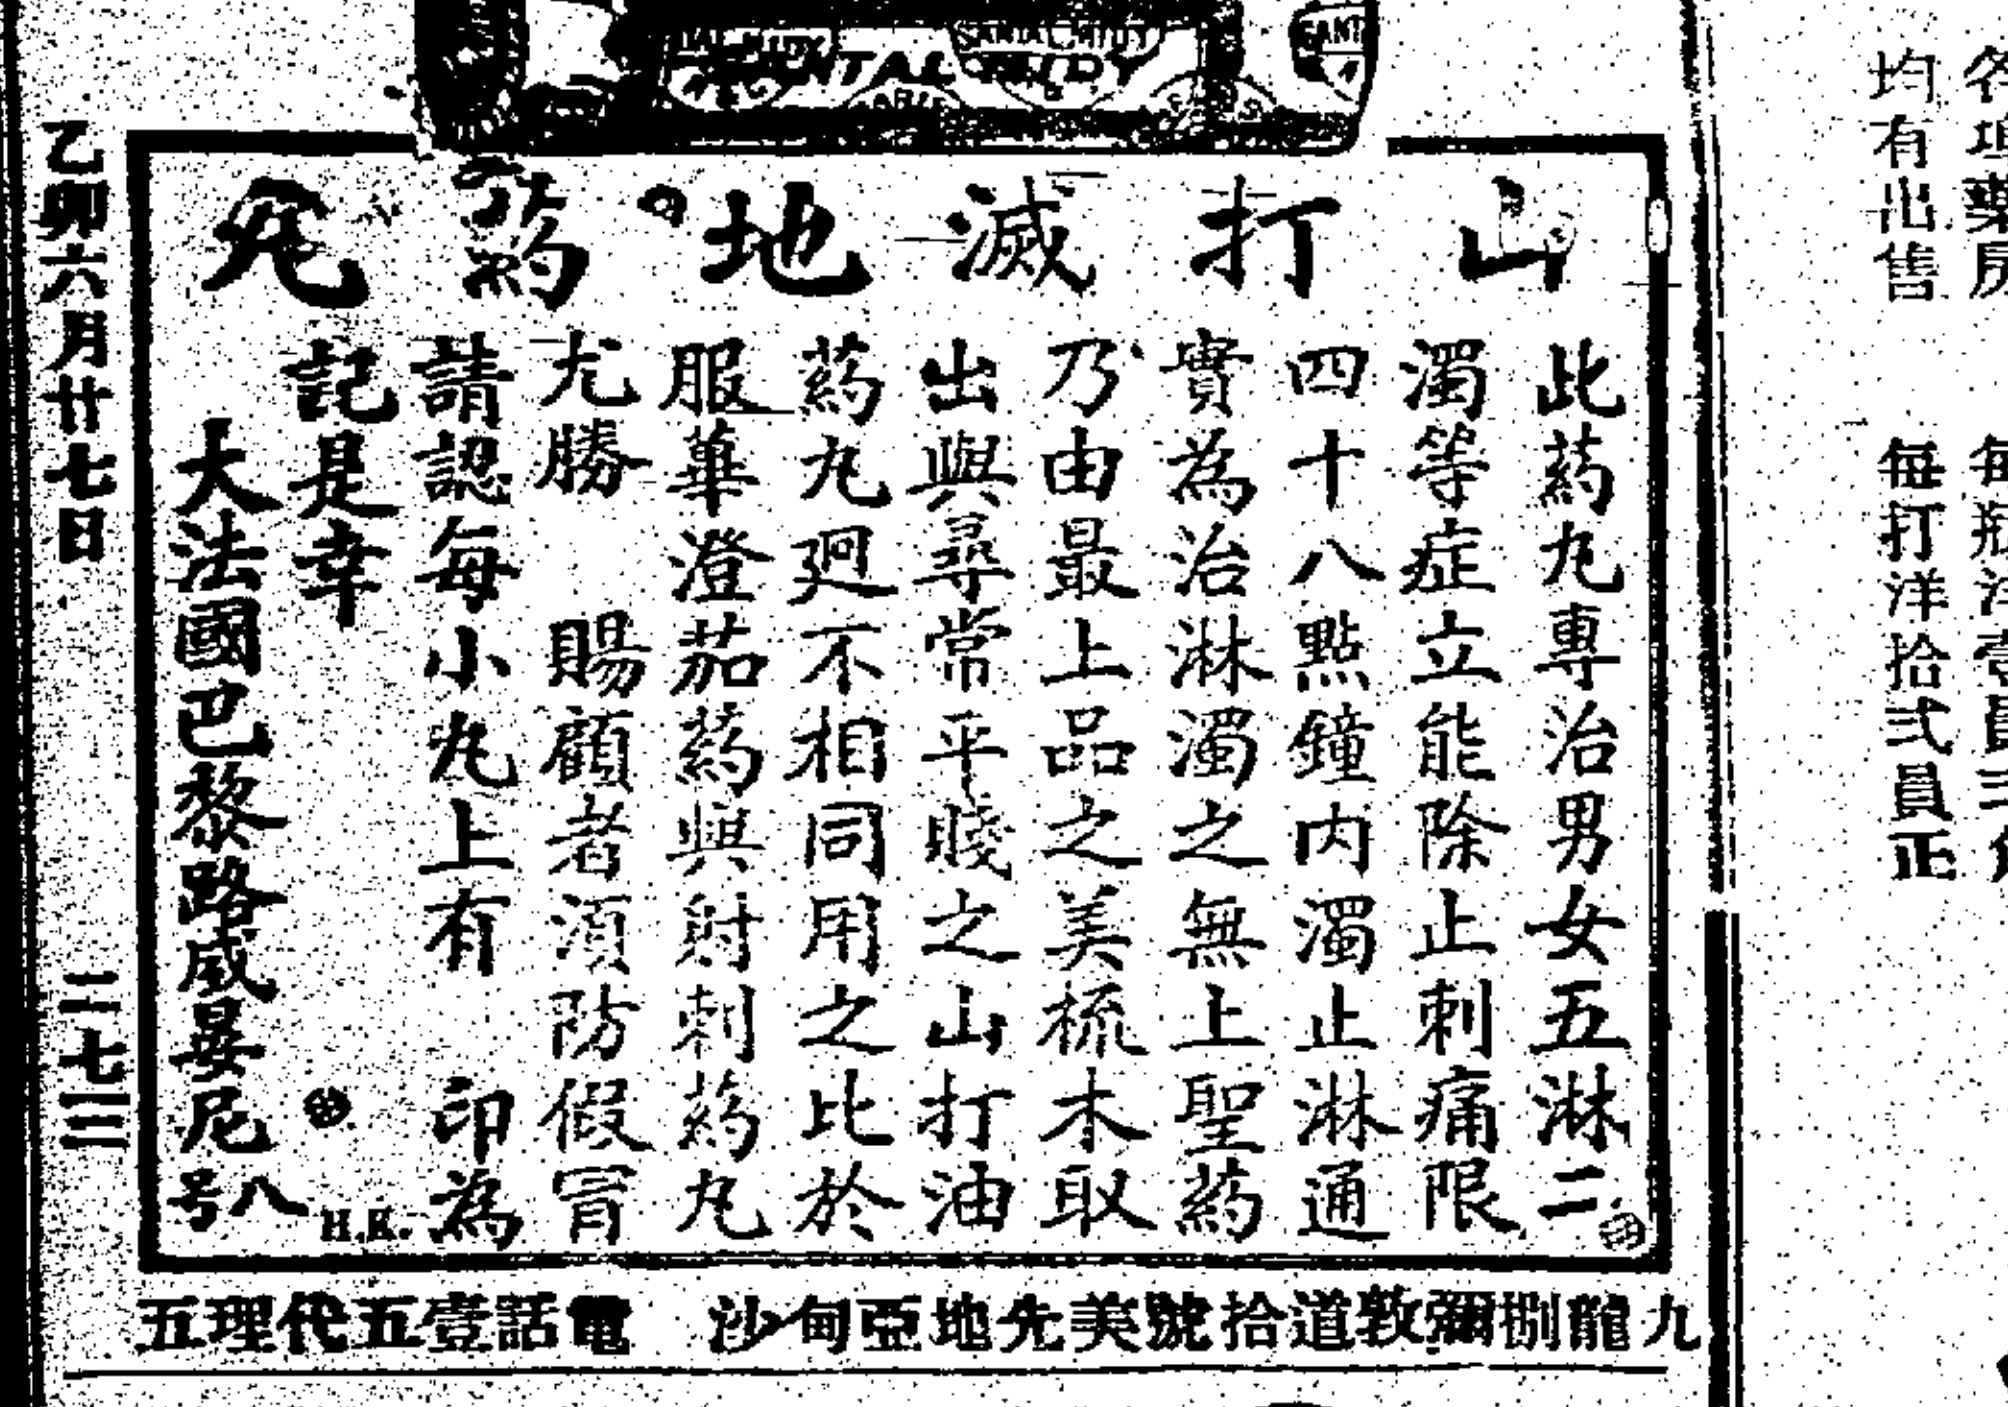 SANTAL MIDY
山打滅地葯丸
此葯丸專治男女五淋二
濁等症立能除止刺痛限
四十八點鐘内濁止淋通
實為治淋濁之無上聖葯
乃由最上品之美梳木取
出與尋常平賤之山打油
葯丸迥不相同用之比於
服蓽澄茄葯與射刺葯丸
尤勝 賜顧者須防假冒
請認每小丸上有 印為
記是幸
大法國巴黎路威晏尼八号
H.K.
九龍捌彌敦道拾號美先地亞甸沙 電話壹五代理五
乙卯六月廿七日 二七三二
均有出售 每打洋拾弍員正